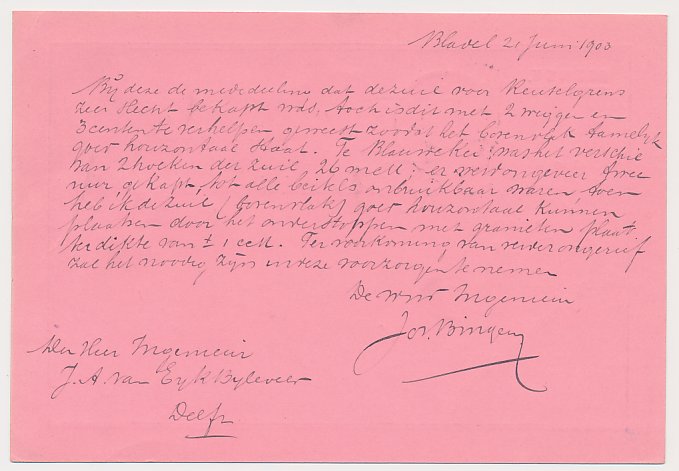 Bladel 21 Juni 1903
Bij deze de mededeeling dat de zuil voor Reuselgrens
zeer slecht bekapt was, toch is dit met 2 wiggen en
3 centen te verhelpen geweest zoodat het bovenvlak tamelijk
goed horizontaal staat. Te Blauwe Kei was het verschil
van 2 hoeken der zuil, 26 met er werd ongeveer twee
uur gekapt, tot alle beitels onbruikbaar waren toen
heb ik de zuil (bovenvlak) goed horizontaal kunnen
plaatsen door het onderstoppen met granieten plaat
ter dikte van ± 1 cM. Ter voorkoming van verder ongerief
zal het noodig zijn in deze voorzorgen te nemen
De Ingenieur
Jos. Bingen
Den Heer Ingenieur
J. A. van Eyk Byleveer
Delft